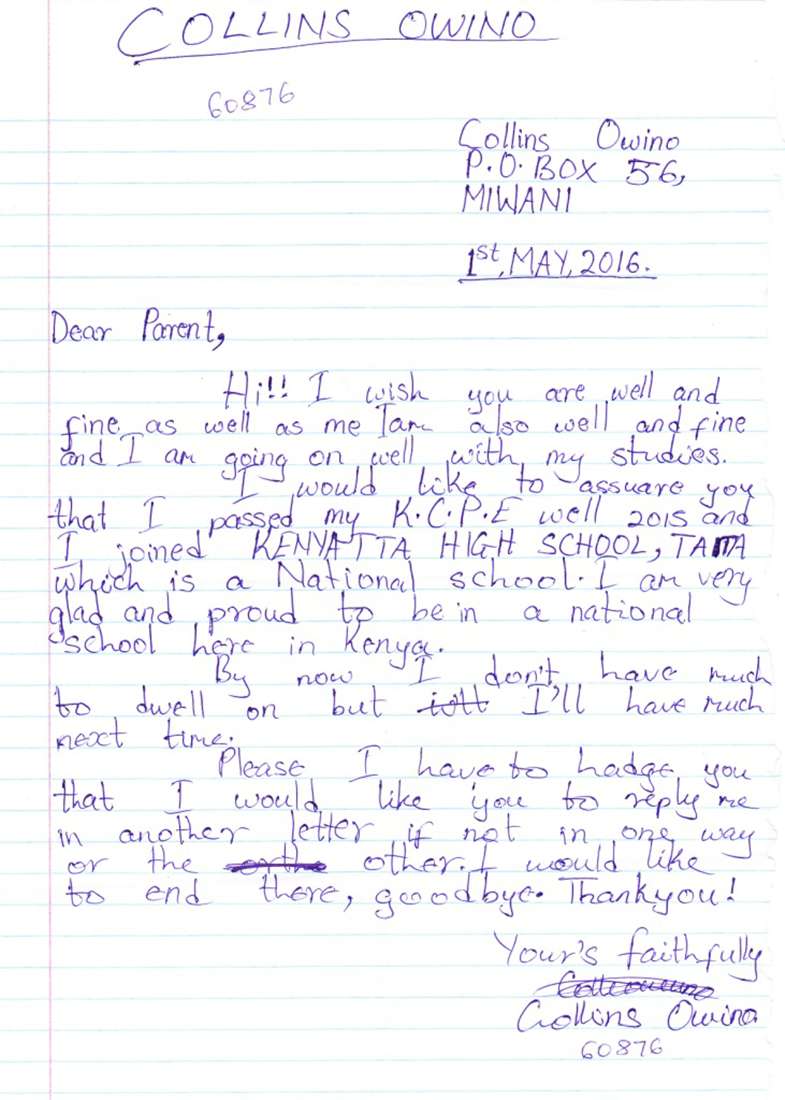 COLLINS OWINO
60876
Collins Owino
P.O. BOX 56,
MIWANI
1st, MAY, 2016.
Dear Parent,
Hi!! I wish you are well and
fine as well as me Iam also well and fine
and I am going on well with my studies.
I would like to assuare you
that I passed my K.C.P.E well 2015 and
I joined KENYATTA HIGH SCHOOL, TAITA
which is a National school. I am very
glad and proud to be in a national
school here in Kenya.
By now I don't have much
to dwell on but I'll have much
next time.
Please I have to hadge you
that I would like you to reply me
in another letter if not in one way
or the other. I would like
to end there, goodbye. Thankyou!
Your's faithfully
Collins Owino
60876